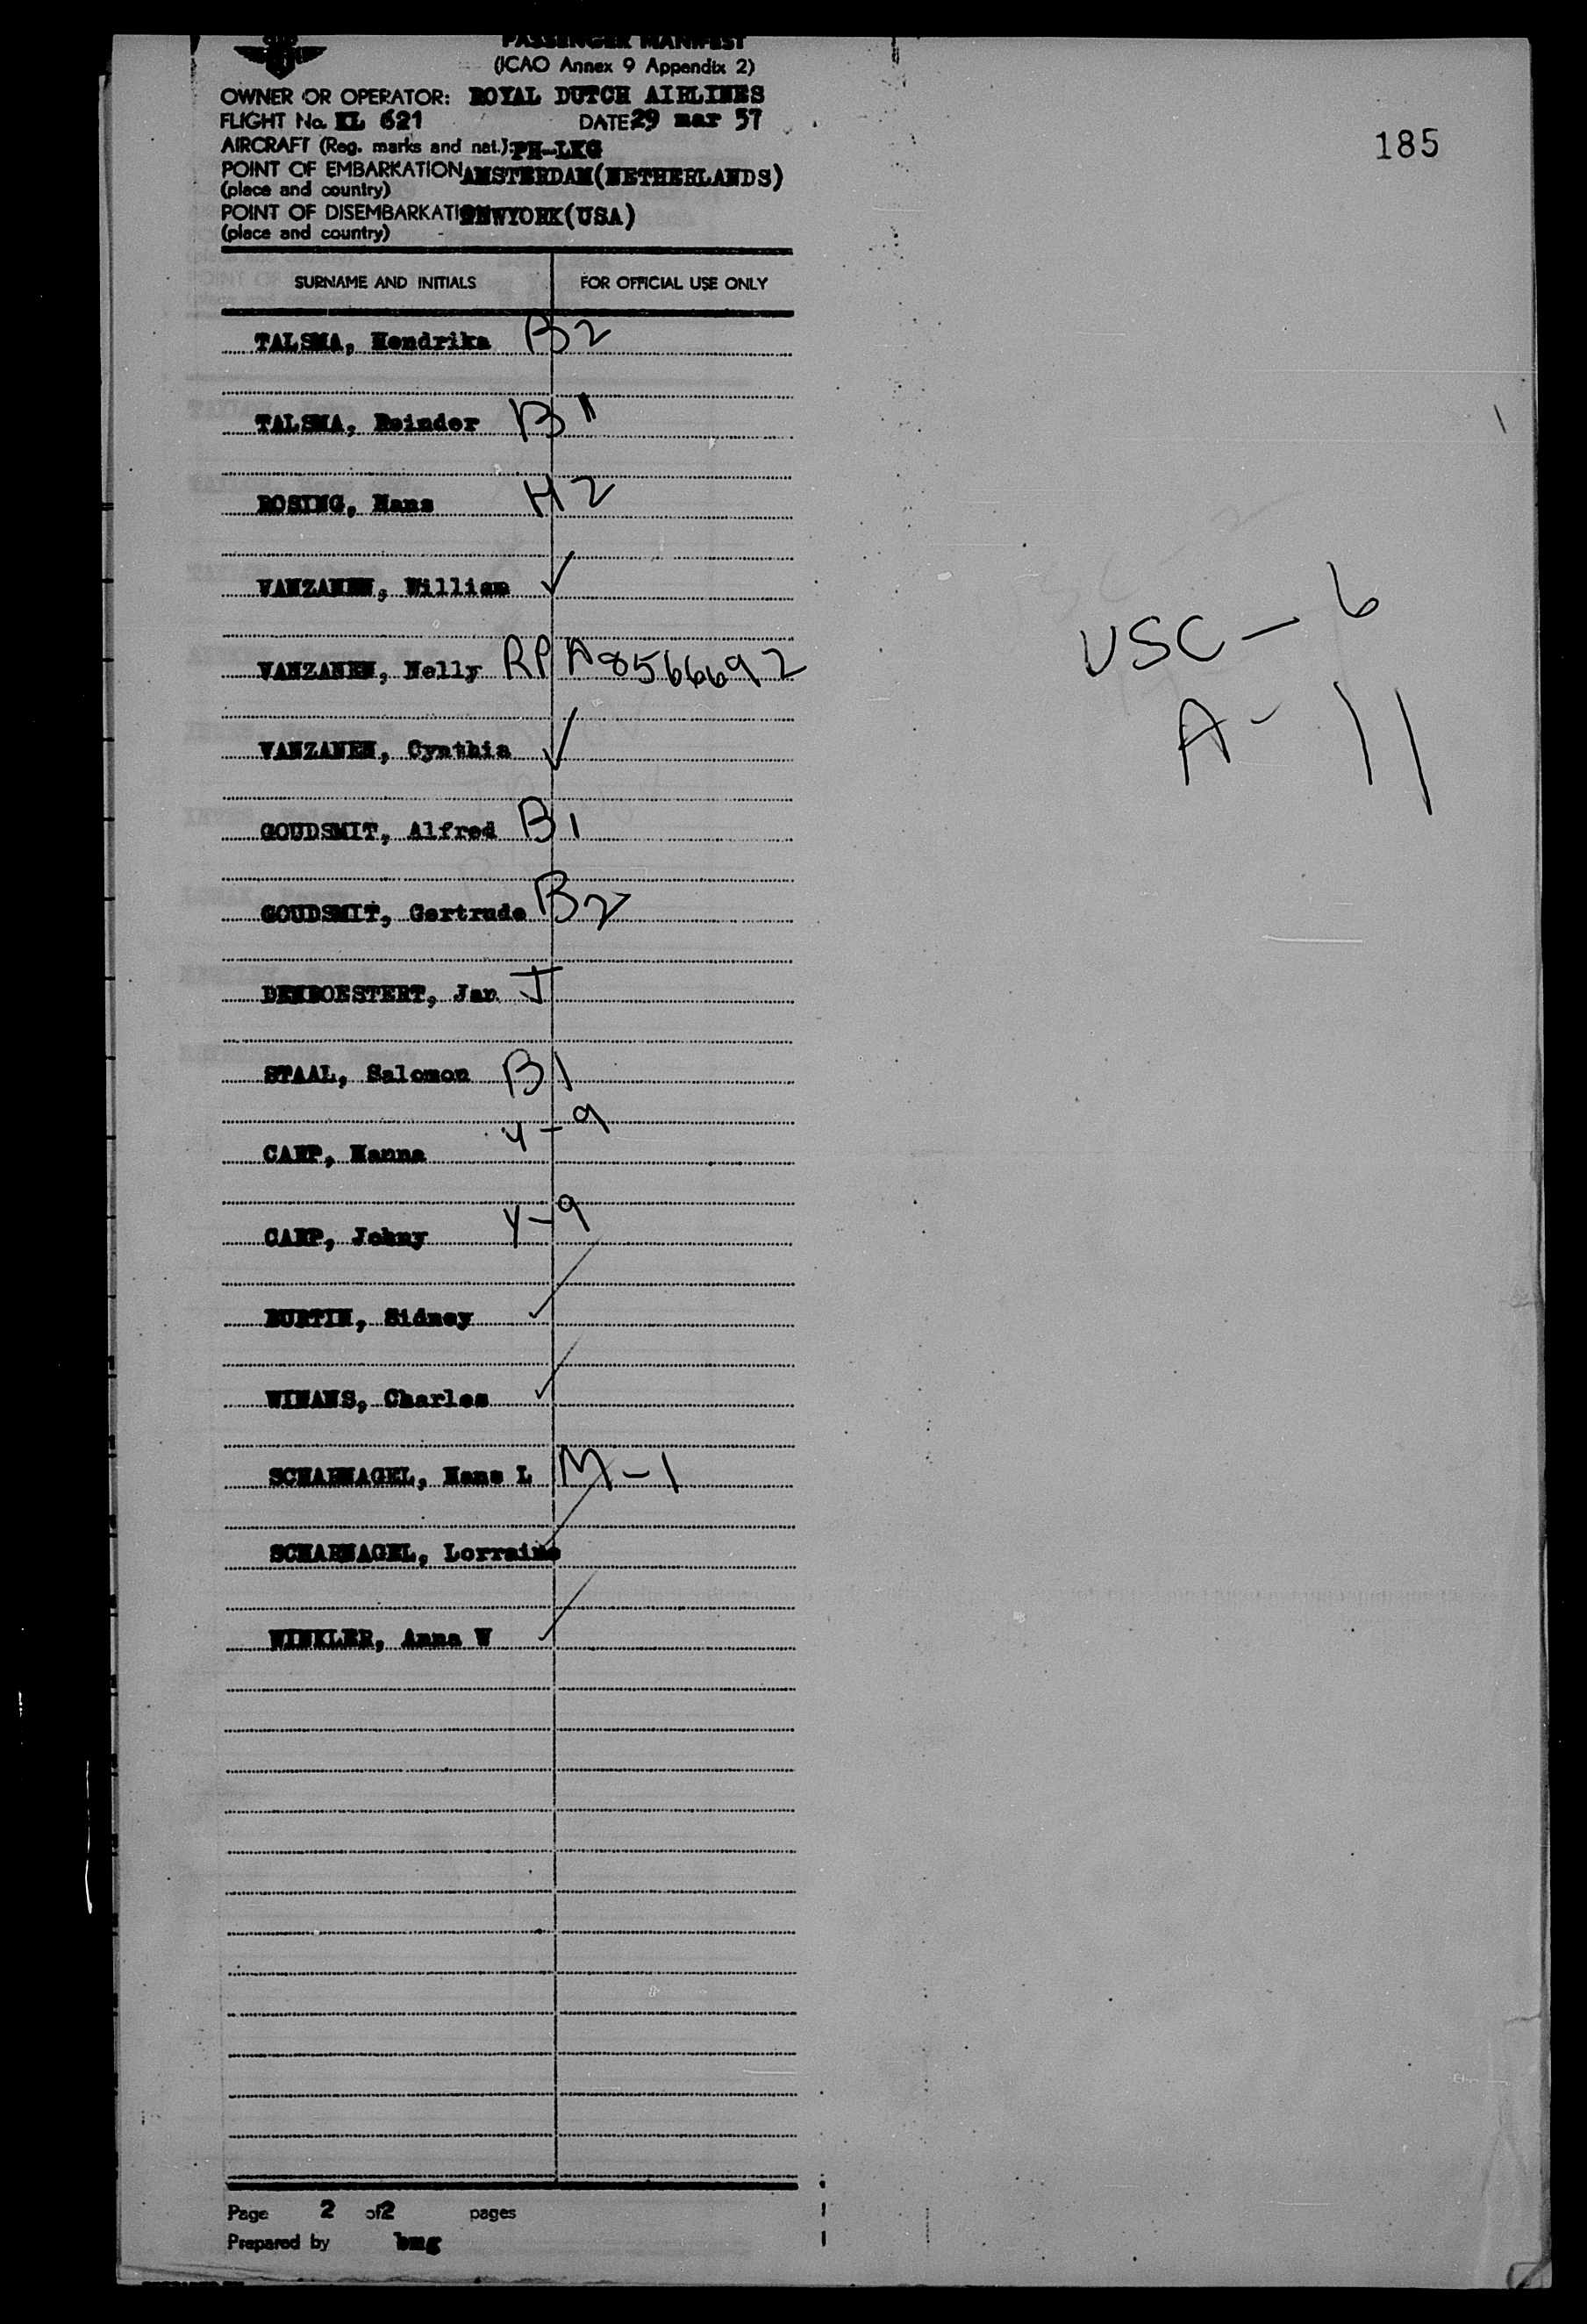 PASSENGER MANIFEST
(ICAO Annex 9 Appendix 2)
OWNER OR OPERATOR: ROYAL DUTCH AIRLINES
FLIGHT No. KL 621 DATE 29 mar 57
185
AIRCRAFT (Reg. marks and nat.): PH-LKG
POINT OF EMBARKATION AMSTERDAM(NETHERLANDS)
(place and country)
POINT OF DISEMBARKATION NEWYORK(USA)
(place and country)
SURNAME AND INITIALS FOR OFFICIAL USE ONLY
TALSMA, Hendrika B2
TALSMA, Reinder B1
ROSING, Hans H2
VANZANEN, William ✓
VANZANEN, Nelly RP A8566692
VANZANEN, Cynthia ✓
USC - 6
A - 11
GOUDSMIT, Alfred B1
GOUDSMIT, Gertrude B2
DENBOESTERT, Jan J
STAAL, Salomon B1
CARP, Hanna Y-9
CARP, Johny Y-9
BURTIN, Sidney ✓
WINANS, Charles ✓
SCHARNAGEL, Hans L M-1
SCHARNAGEL, Lorraine ✓
WINKLER, Anna W ✓
Page 2 of 2 pages
Prepared by bmg